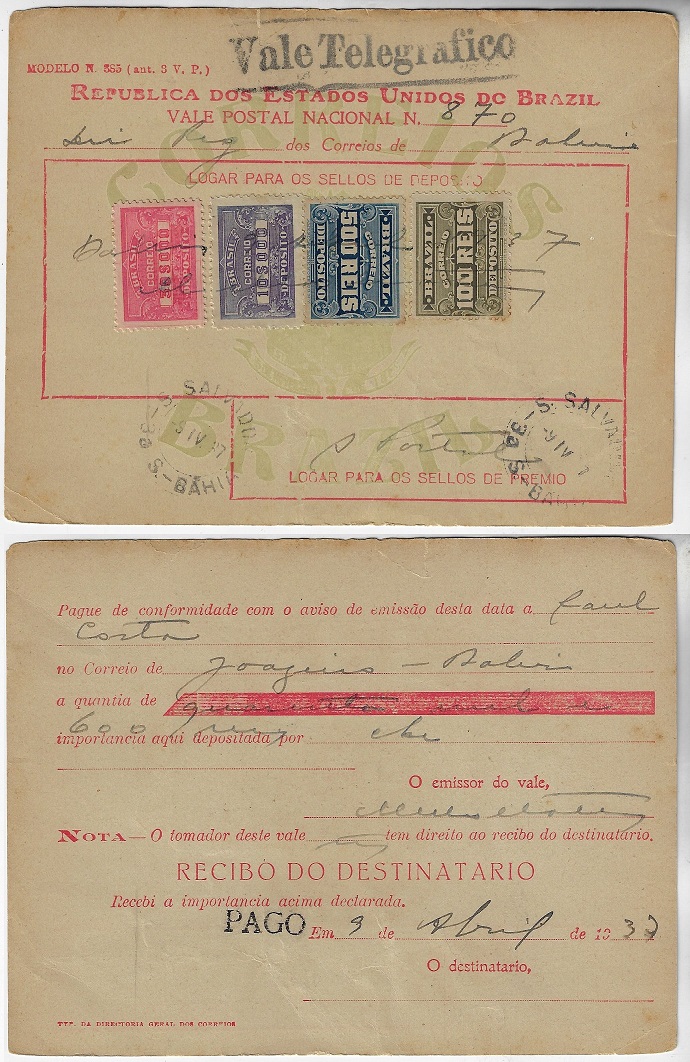 Vale Telegrafico
MODELO N. 385 (ant. 3 V. P.)
REPUBLICA DOS ESTADOS UNIDOS DO BRAZIL
VALE POSTAL NACIONAL N. 870
dos Correios de
CORREIOS
LOGAR PARA OS SELLOS DE DEPOSITO
BRASIL CORREIO DEPOSITO
BRASIL CORREIO 10$000 DEPOSITO
BRAZIL CORREIO 500 REIS DEPOSITO
BRAZIL CORREIO 100 REIS DEPOSITO
BRAZIL
S. SALVADOR
IV 37
3a S-BAHIA
S. SALVADOR
9 IV
3a S-BAHIA
LOGAR PARA OS SELLOS DE PREMIO
Pague de conformidade com o aviso de emissão desta data a
Costa
no Correio de
a quantia de quarenta
600
importancia aqui depositada por
O emissor do vale,
NOTA — O tomador deste vale tem direito ao recibo do destinatario.
RECIBO DO DESTINATARIO
Recebi a importancia acima declarada.
PAGO Em 9 de Abril de 1937
O destinatario,
TYP. DA DIRECTORIA GERAL DOS CORREIOS